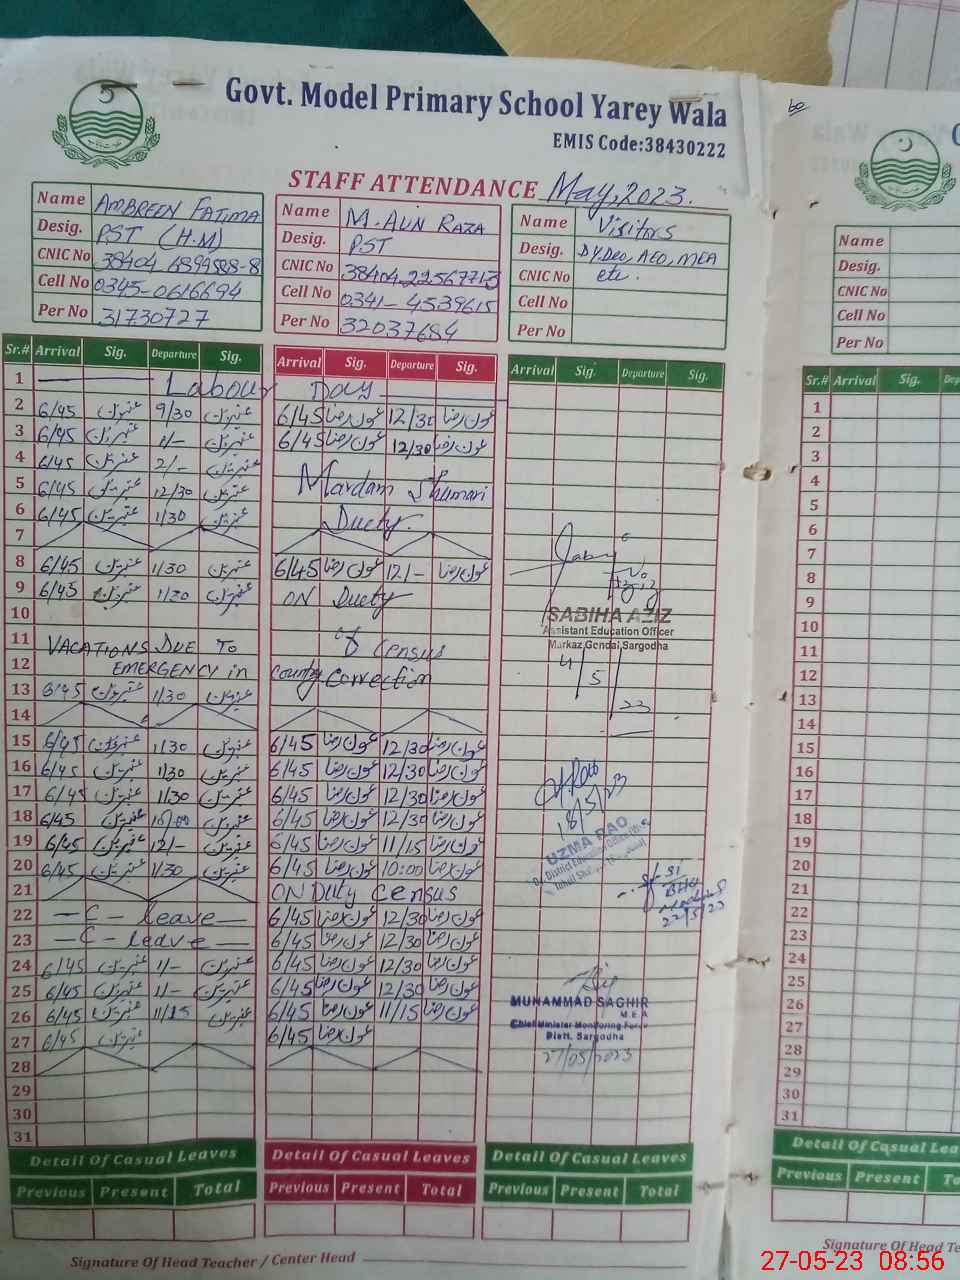 Govt. Model Primary School Yarey Wala
EMIS Code:38430222
STAFF ATTENDANCE May, 2023.
Name AMBREEN FATIMA
Desig. PST (H.M)
CNIC No
Cell No 0345-0616694
Per No 31730727
Name M. AUN RAZA
Desig. PST
CNIC No 38404-2256771-3
Cell No 0341-4539615
Per No 32037684
Name Visitors
Desig. DY.Deo, AEO, MEA
CNIC No etc.
Cell No
Per No
Name
Desig.
CNIC No
Cell No
Per No
Sr.# Arrival Sig. Departure Sig. Arrival Sig. Departure Sig. Arrival Sig. Departure Sig.
Sr.# Arrival Sig.
1 Labour Day
2 6/45 عنبرین 9/30 عنبرین 6/45 عون رضا 12/30 عون رضا
3 6/45 عنبرین 1/- عنبرین 6/45 عون رضا 12/30 عون رضا
4 6/45 عنبرین 2/- عنبرین
5 6/45 عنبرین 12/30 عنبرین Mardam Shumari
6 6/45 عنبرین 1/30 عنبرین Duety.
7
8 6/45 عنبرین 1/30 عنبرین 6/45 عون رضا 12/- عون رضا
9 6/45 عنبرین 1/30 عنبرین ON Duety
10
11 VACATIONS DUE TO of Census
12 EMERGENCY in country correction
13 6/45 عنبرین 1/30 عنبرین
14
15 6/45 عنبرین 1/30 عنبرین 6/45 عون رضا 12/30 عون رضا
16 6/45 عنبرین 1/30 عنبرین 6/45 عون رضا 12/30 عون رضا
17 6/45 عنبرین 1/30 عنبرین 6/45 عون رضا 12/30 عون رضا
18 6/45 عنبرین 10/00 عنبرین 6/45 عون رضا 12/30 عون رضا
19 6/45 عنبرین 12/- عنبرین 6/45 عون رضا 11/15 عون رضا
20 6/45 عنبرین 1/30 عنبرین 6/45 عون رضا 10:00 عون رضا
21 ON Duty Census
22 - C - leave - 6/45 عون رضا 12/30 عون رضا
23 - C - leave - 6/45 عون رضا 12/30 عون رضا
24 6/45 عنبرین 1/- عنبرین 6/45 عون رضا 12/30 عون رضا
25 6/45 عنبرین 1/- عنبرین 6/45 عون رضا 12/30 عون رضا
26 6/45 عنبرین 11/15 عنبرین 6/45 عون رضا 11/15 عون رضا
27 6/45 عنبرین 6/45 عون رضا
28
29
30
31
SABIHA AZIZ
Assistant Education Officer
Markaz Gondal, Sargodha
4/5/23
18/5/23
UZMA RAO
22/5/23
MUHAMMAD SAGHIR
M.E.A
Chief Minister Monitoring Force
Distt. Sargodha
27/05/2023
1
2
3
4
5
6
7
8
9
10
11
12
13
14
15
16
17
18
19
20
21
22
23
24
25
26
27
28
29
30
31
Detail Of Casual Leaves Detail Of Casual Leaves Detail Of Casual Leaves
Previous Present Total Previous Present Total Previous Present Total
Signature Of Head Teacher / Center Head
Detail Of Casual Lea
Previous Present To
Signature Of Head Te
27-05-23 08:56